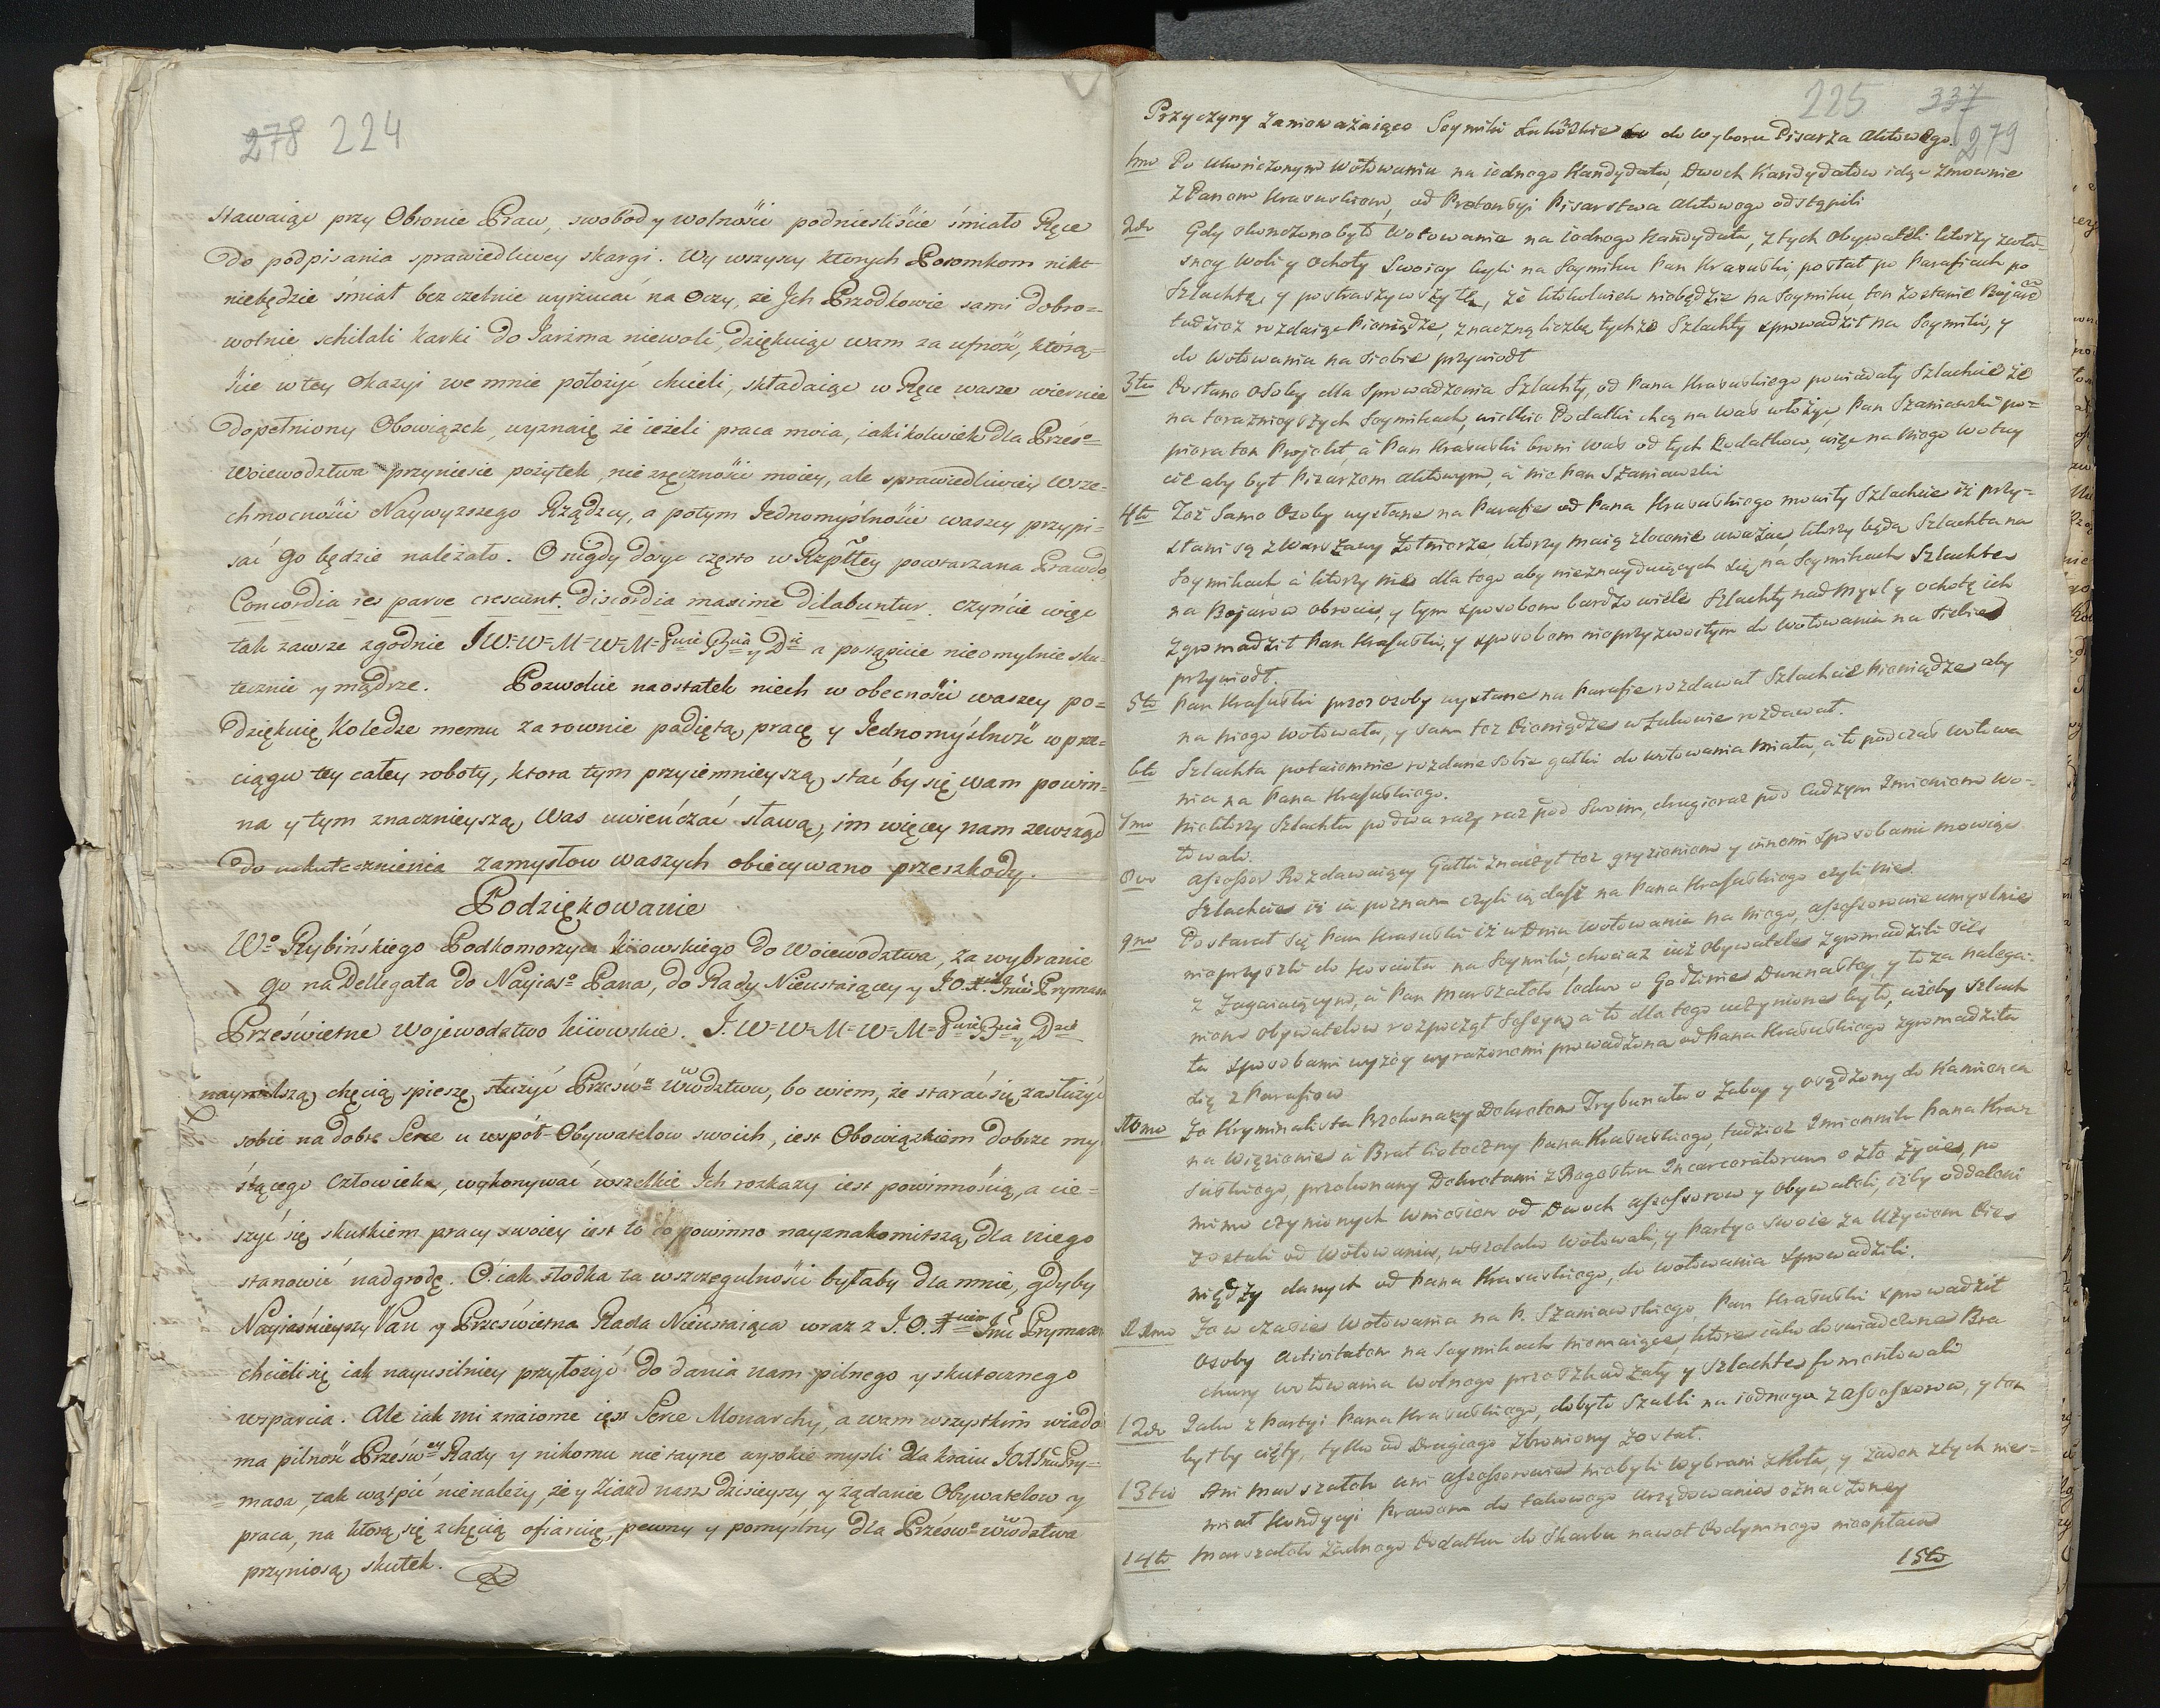 278 224
stawaiąc przy Obronie Praw, swobod y wolnosci podniesliście śmiało Ręce
do podpisania sprawiedliwey skargi. Wy wszyscy ktorych Potomkom nikt
niebędzie śmiał bezczelnie wyrzucać na Oczy, że Jch Przodkowie sami dobro=
wolnie schilali karki do Jarzma niewoli, dziękuiąc wam za ufność, którą=
ście w tey Okazyi we mnie położyć chcieli, składaiąc w Ręce wasze wiernie
dopełniony Obowiązek, wyznaię że ieżeli praca moia, iakikolwiek dla Prześ=
Woiewodztwa przyniesie pożytek, nie zręcznośći moiey, ale sprawiedliwiey Wsze=
chmocnośći Naywyzszego Rządzcy, a potym Jednomyślnośći waszey przypi=
sać Go będzie należało. O nigdy dosyc często w Rzpłtey powtarzana Prawdo
Concordia res parve crescunt. discordia maxime dilabuntur. czyńcie więc
tak zawsze zgodnie JW=W=M=W=M=Pwie Bcia y Die a postąpicie nieomylnie sku=
tecznie y mądrze. Pozwolcie naostatek niech w obecnośći waszey po=
dziękuię Koledze memu za rownie padiętą pracę y Jednomyślność w prze=
ciągu tey całey roboty, ktora tym przyiemnieyszą stać by się wam powin=
na y tym znacznieyszą Was uwieńczać sławą, im więcey nam zewsząd
do uskutecznienia zamysłow waszych obiecywano przeszkody.
Podziękowanie
Wo Rybińskiego Podkomorzyca kiiowskiego do Woiewodztwa, za wybranie
go na Dellegata do Nayias Pana, do Rady Nieustaiącey y J.O. Xcia Jmci Prymasa
Prześwietne Wojewodztwo kiiowskie. J. W=W=M=W=M=Pwie Bcia y Dzie
naymilszą chęcią spieszę służyć Prześw= Wwodztwu, bo wiem, że starać się zasłużyć
sobie na dobre Serce u wspoł-Obywatelow swoich, iest Obowiązkiem dobrze my
ślącego człowieka, wykonywać wszelkie Ich rozkazy iest powinnośćią, a cie=
szyć się skutkiem pracy swoiey iest to co powinno nayznakomitszą dla niego
stanowić nadgrodę. O. iak słodka ta wszczegulnośći byłaby dla mnie, gdyby
Nayiaśnieyszy Pan y Prześwietna Rada Nieustaiąca wraz z J.O. Xciem Jmć Prymasem
chcieli się iak nayusilniey przyłożyć do dania nam pilnego y skutecznego
wsparcia. Ale iak mi znaiome iest Serce Monarchy, a wam wszystkim wiado
ma pilność Prześwey Rady y nikomu nie tayne wysokie mysli dla kraiu JOX Jmci Pry=
masa, tak wątpić nienależy, że y Ziazd nasz dzisieyszy y żądanie Obywatelow y
praca, na ktorą się z chęcią ofiaruię, pewny y pomyślny dla Prześwo Wwodztwa
przyniosą skutek.
225 337
279
Przyczyny zanieważaiące Seymik Łukowskie do wyboru Pisarza Aktowego.
1mo Po ukończonym Wotowaniu na iednego Kandydata, Dwoch Kandydatow idąc zmownie
z Panem Krasuskiem, od Pretensyi Pisarstwa Aktowego odstąpili
2do Gdy skonczono było Wotowanie na iednego Kandydata, z tych Obywateli ktorzy z wła=
sney Woli y Ochoty Swoiey byli na Seymiku Pan Krasuski posłał po Parafiach po
Szlachtę, y postraszywszy tę, że ktokolwiek niebędzie na Seymiku, ten zostanie Bojarem
tudziez rozdaiąc Pieniądze, znaczną liczbę tychże Szlachty sprowadził na Seymik, y
do Wotowania na siebie przywiodł
3tio Posłane Osoby dla Sprowadzenia Szlachty, od Pana Krasuskiego powiadały Szlachcie że
na teraznieyszych Seymikach, wielkie Podatki chcą na was włożyć, Pan Szaniawski po=
piera ten Projekt, a Pan Krasuski broni Was od tych Podatkow, więc na niego Wotuy
cie aby był Pisarzem Aktowym, a nie Pan Szaniawski
4to Też Same Osoby wysłane na Parafie od Pana Krasuskiego mowiły Szlachcie iż przy=
słani są z Warszawy Zołnierze, ktorzy maią zlecenie uważać, ktorzy będą Szlachta na
Seymikach a ktorzy nie, dla tego aby nieznayduiących się na Seymikach Szlachte
na Bojarow obrocić, y tym sposobem bardzo wiele Szlachty nad mysl y ochotę ich
zgromadził Pan Krasuski, y sposobem nieprzyzwoitym do Wotowania na siebie
przywiodł.
5to Pan Krasuski przez osoby wysłane na Parafie rozdawał Szlachcie Pieniądze aby
na niego Wotowała, y sam też Pieniądze w Łukowie rozdawał.
6to Szlachta potaiemnie rozdane sobie gałki do wotowania miała, a to podczas wotowa
nia na Pana Krasuskiego.
7mo Niektorzy Szlachta po dwa razy raz pod Swoim, drugi raz pod Cudzym Imieniem Wo=
towali.
8vo Assessor Rozdawaiący Gałki znaczył też gryzieniem y innemi sposobami mowiąc
Szlachcie iż ia poznam czyli ią dasz na Pana Krasuskiego czyli nie.
9no Postarał się Pan Krasuski iż w Dniu Wotowania na niego, Assessorowie umyslnie
nieprzyszli do Koscioła na Seymik, chociaz iuż Obywatele zgromadzili się
z Zagaiaiącym, a Pan Marszałek ledwo o Godzinie Dwunastey y to za nalega=
niem Obywatelow rozpoczął Sessyą, a to dla tego uczynione było, ażeby Szlach
ta sposobami wyżey wyrażonemi prowadzona od Pana Krasuskiego zgromadziła
się z Parafiow
10mo Ze Kryminalista Przekonany Dekretem Trybunału o Zaboy y osądzony do Kamienca
na Więzienie a Brat Cioteczny Pana Krasuskiego, tudziez Imiennik Pana Kra=
suskiego, przekonany Dekretami z Regestru Incarceratorum o złe życie, po
mimo czynionych wniosien od Dwoch Assessorow y Obywateli, iżby oddaleni
zostali od Wotowania, wszelako wotowali, y Partye swoie za Użyciem Pie=
niędzy danych od Pana Krasuskiego, do wotowania sprowadzili.
11mo Ze w czasie Wotowania na P. Szaniawskiego Pan Krasuski sprowadził
Osoby Activitatem na Seymikach niemaiące, ktore iako doswiadczone Bra
chury wotowania wolnego przeszkadzały y Szlachte fomentowali
12do Jako z Partyi Pana Krasuskiego, dobyto Szabli na iednego z Assessorow, y ten
byłby cięty, tylko od Drugiego Zbroniony został.
13tio Ani Marszałek ani Assessorowie niebyli wybrani z Koła, y żaden z tych nie=
miał Kondycyi Prawem do takowego urzędowania oznaczoney
14to Marszałek Zadnego Podatku do Skarbu nawet Podymnego nieopłaca
15to